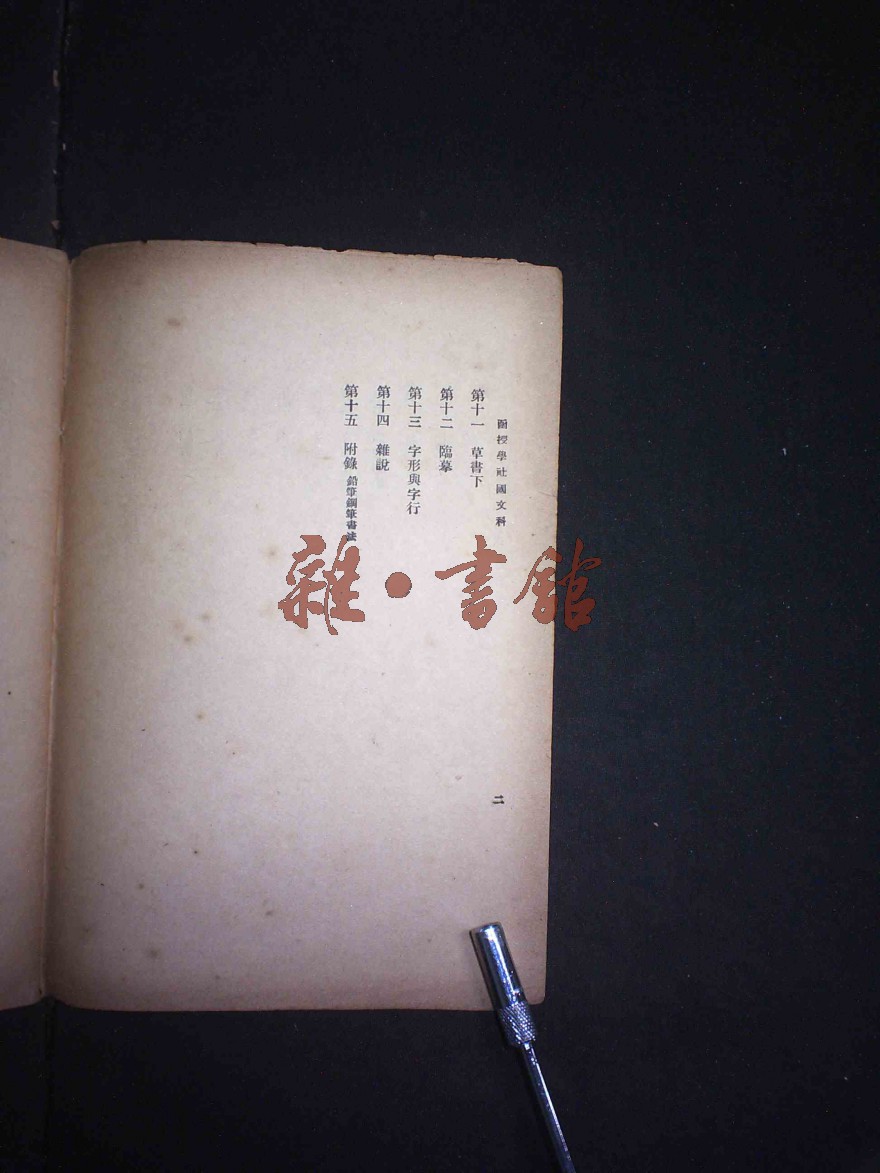 函授學社國文科
二
第十一　草書下
第十二　臨摹
第十三　字形與字行
第十四　雜說
第十五　附錄 鉛筆鋼筆書法
雜·書館